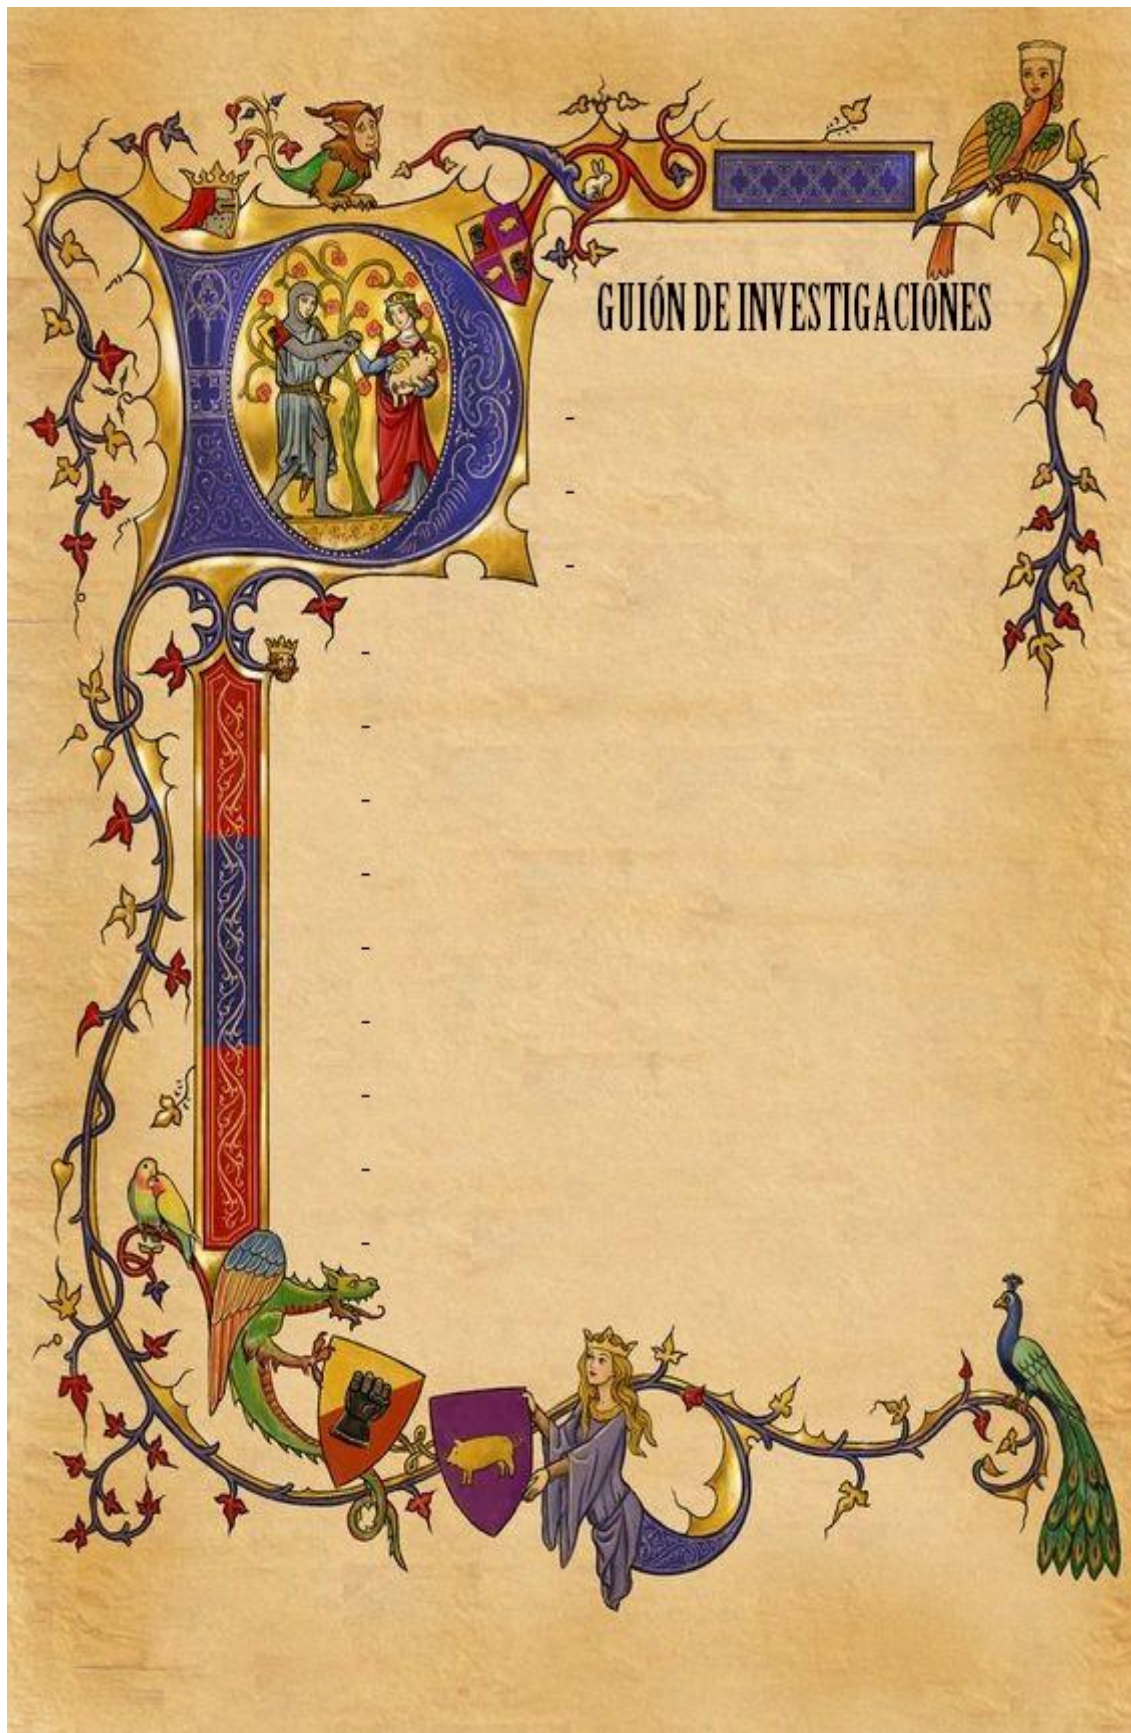 GUIÓN DE INVESTIGACIONES
-
-
-
-
-
-
-
-
-
-
-
-